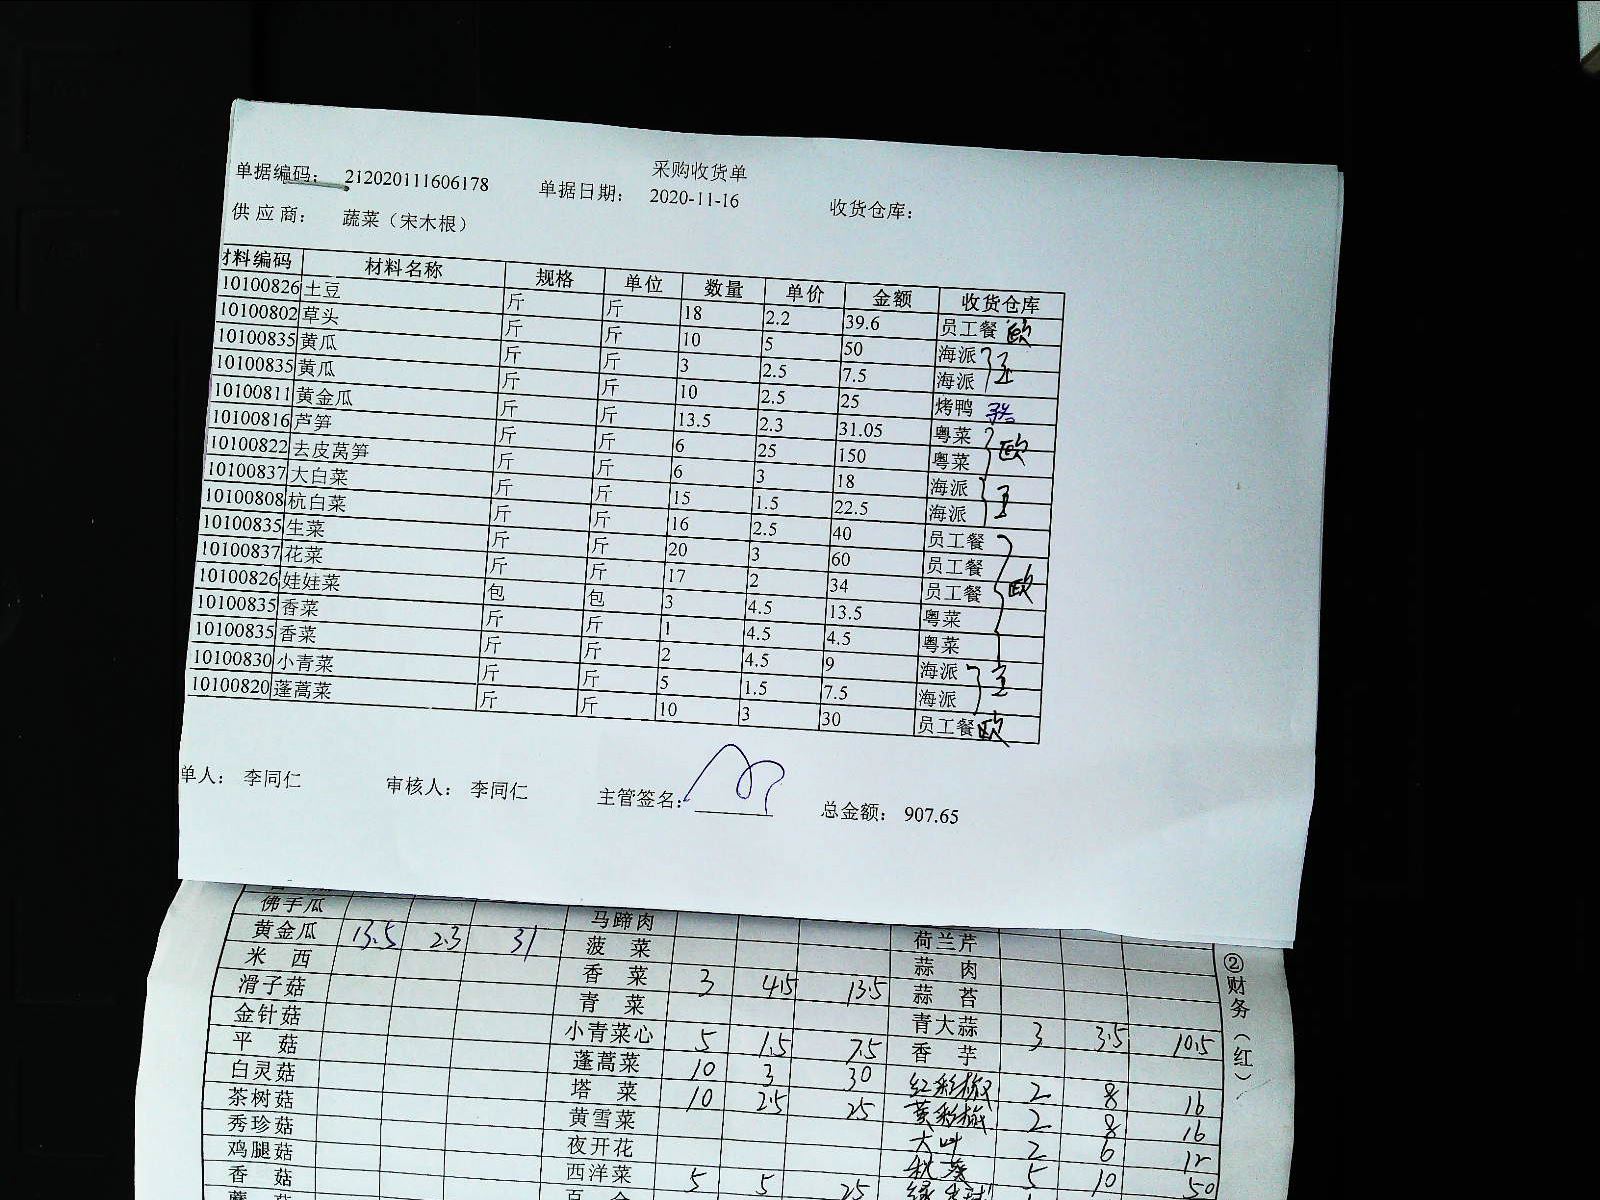 采购收货单
单据编码： 212020111606178 单据日期： 2020-11-16 收货仓库：
供应商： 蔬菜（宋木根）
材料编码 材料名称 规格 单位 数量 单价 金额 收货仓库
10100826 土豆 斤 斤 18 2.2 39.6 员工餐 欧
10100802 草头 斤 斤 10 5 50 海派 王
10100835 黄瓜 斤 斤 3 2.5 7.5 海派
10100835 黄瓜 斤 斤 10 2.5 25 烤鸭
10100811 黄金瓜 斤 斤 13.5 2.3 31.05 粤菜 欧
10100816 芦笋 斤 斤 6 25 150 粤菜
10100822 去皮莴笋 斤 斤 6 3 18 海派 王
10100837 大白菜 斤 斤 15 1.5 22.5 海派
10100808 杭白菜 斤 斤 16 2.5 40 员工餐
10100835 生菜 斤 斤 20 3 60 员工餐
10100837 花菜 斤 斤 17 2 34 员工餐 欧
10100826 娃娃菜 包 包 3 4.5 13.5 粤菜
10100835 香菜 斤 斤 1 4.5 4.5 粤菜
10100835 香菜 斤 斤 2 4.5 9 海派 王
10100830 小青菜 斤 斤 5 1.5 7.5 海派
10100820 蓬蒿菜 斤 斤 10 3 30 员工餐 欧
单人： 李同仁 审核人： 李同仁 主管签名： 总金额： 907.65
佛手瓜 马蹄肉
黄金瓜 13.5 2.3 31 菠菜 荷兰芹
米西 香菜 3 4.5 13.5 蒜肉
滑子菇 青菜 蒜苔
金针菇 小青菜心 5 1.5 7.5 青大蒜 3 3.5 10.5
平菇 蓬蒿菜 10 3 30 香芋
白灵菇 塔菜 10 2.5 25 红彩椒 2 8 16
茶树菇 黄雪菜 黄彩椒 2 8 16
秀珍菇 夜开花 大叶 2 6 12
鸡腿菇 西洋菜 5 5 25 秋葵 5 10 50
香菇
②财务（红）